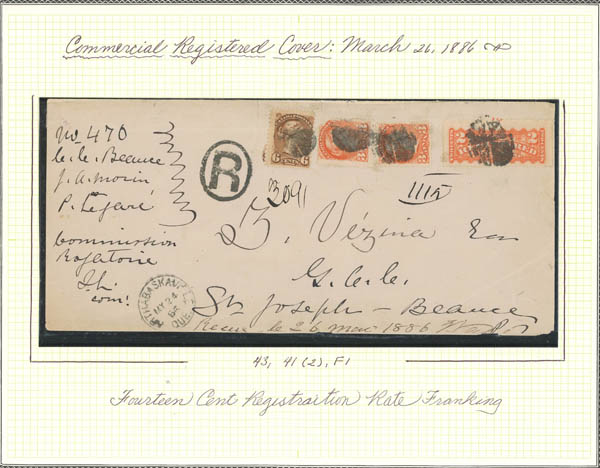 Commercial Registered Cover: March 26, 1886
No 470
C. C. Beauce
J. A. Morin
P. Légaré
Commission
Rogatoire
com!
R
3091
6 CENTS 6
3 3
3 3
1115
Z. Vézina
G. C. C.
St Joseph - Beauce
Recue le 26 mai 1886
ARTHABASKAVILLE
MY 24
86
QUE
43, 41 (2), F1
Fourteen Cent Registraition Rate Franking